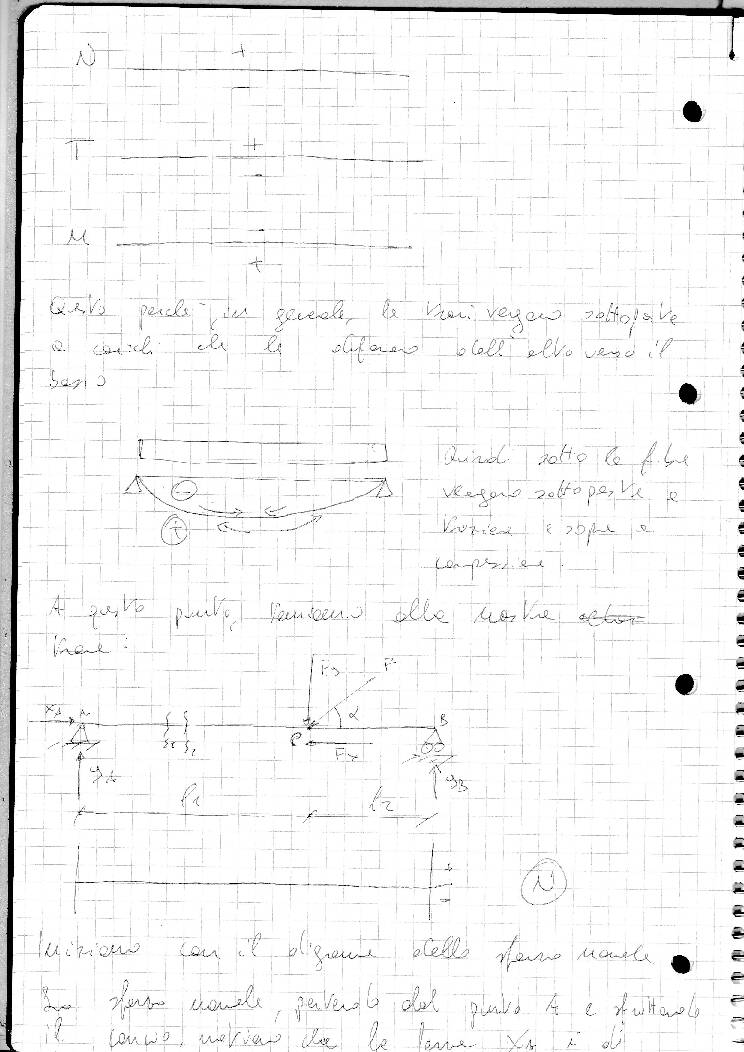 N +
−
T +
−
M −
+
Questo perché, in generale, le travi vengono sottoposte
a carichi che le deformano dall'alto verso il
basso
Quindi sotto le fibre
−
vengono sottoposte a
+
trazione e sopra a
compressione.
A questo punto, torniamo alla nostra
trave:
Fy F
XA A α B
S1 S2 C
Fx
yA yB
l1 l2
+
− N
Iniziamo con il diagramma dello sforzo normale
Lo sforzo normale, partendo dal punto A e sfruttando
il concio, notiamo che la forza XA è di